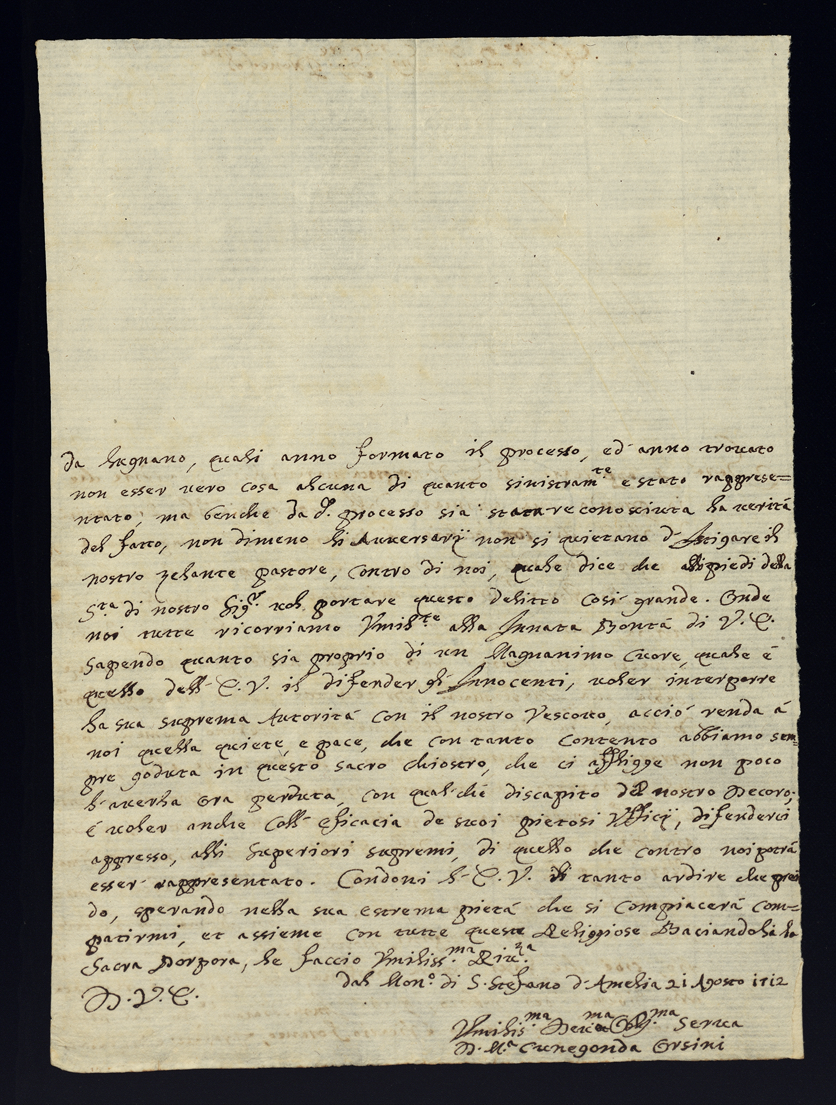 da lugnano, quali anno formato il processo, ed anno trouato
non esser uero cosa alcuna di quanto sinistram.te e stato rapprese=
ntato, ma benche da d.o processo sia stata reconosciuta la uerità
del fatto, non dimeno li Auuersarij non si quietano d'Istigare il
nostro zelante pastore, contro di noi, quale dice che alli piedi della
S.ta di nostro Sig.r uol portare questo delitto cosi grande. Onde
noi tutte ricorriamo Vmil.te alla Innata Bontà di V. E.
sapendo quanto sia proprio di un Magnanimo Cuore, quale è
quello dell' E. V. il difender gl' Innocenti, uoler interporre
la sua suprema Autorità con il nostro Vescouo, acciò renda à
noi quella quiete, e pace, che con tanto contento abbiamo sem=
pre goduta in questo sacro chiostro, che ci affligge non poco
l' auerla ora perduta, con qual che discapito del nostro Decoro;
è uoler anche coll' eficacia de suoi pietosi Vfficij, difenderci
appresso, alli superiori supremi, di quello che contro noi potrà
esser rappresentato. Condoni l' E. V. il tanto ardire che pren
do, sperando nella sua estrema pietà che si compiacerà com=
patirmi, et assieme con tutte queste Religgiose Baciandoli la
Sacra Porpora, le faccio Vmiliss.ma Riu.za
D. V. E.
dal Mon.o di S. Stefano d'Amelia 21 Agosto 1712
Vmilis.ma Deu.ma Obl.ma Serua
D. M.a Cunegonda Orsini